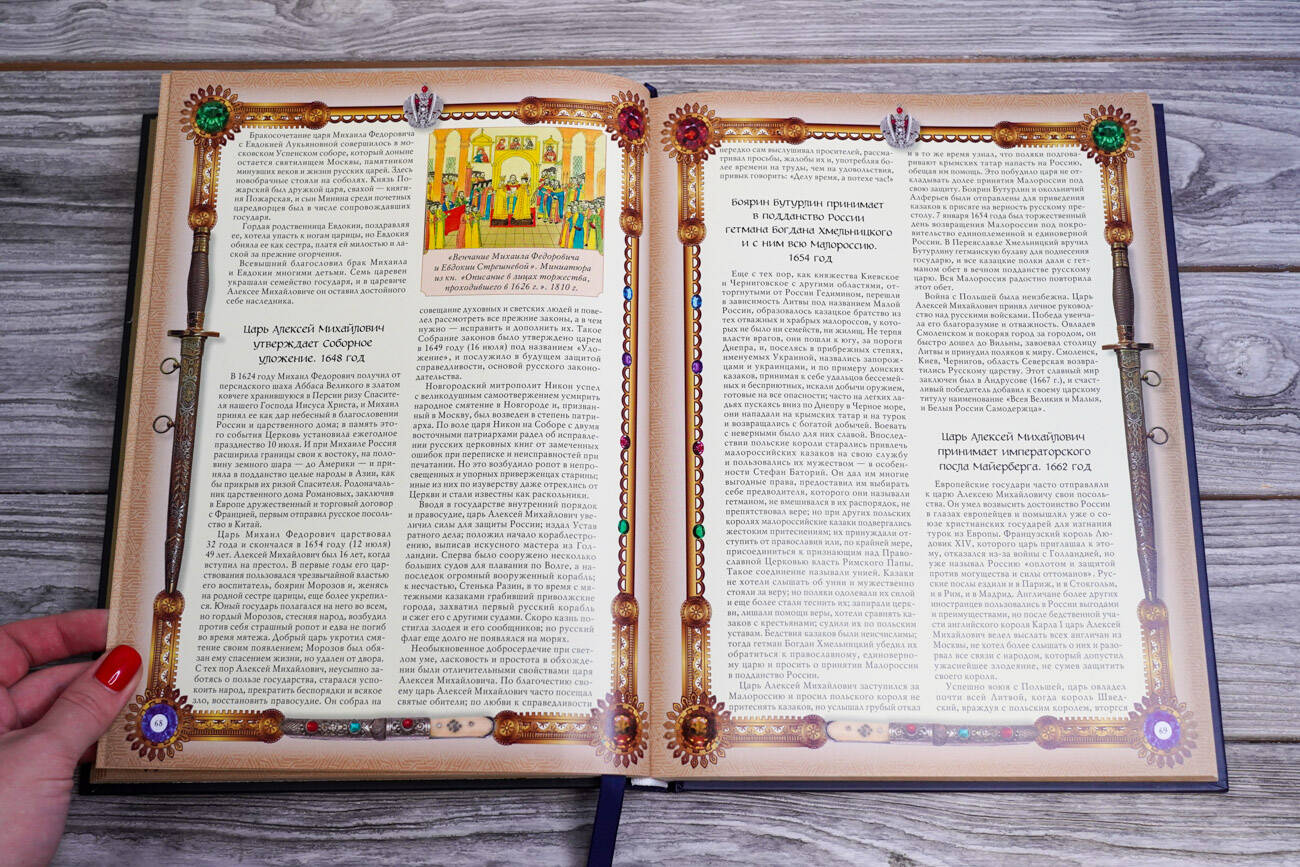 Бракосочетание царя Михаила Федоровича
с Евдокией Лукьяновной совершилось в мо-
сковском Успенском соборе, который доныне
остается святилищем Москвы, памятником
минувших веков и жизни русских царей. Здесь
новобрачные стояли на соболях. Князь По-
жарский был дружкой царя, свахой — княги-
ня Пожарская, и сын Минина среди почетных
царедворцев был в числе сопровождавших
государя.
Гордая родственница Евдокии, поздравляя
ее, хотела упасть к ногам царицы, но Евдокия
обняла ее как сестра, платя ей милостью и ла-
ской за прежние огорчения.
Всевышний благословил брак Михаила
и Евдокии многими детьми. Семь царевен
украшали семейство государя, и в царевиче
Алексее Михайловиче он оставил достойного
себе наследника.
Царь Алексей Михайлович
утверждает Соборное
уложение. 1648 год
В 1624 году Михаил Федорович получил от
персидского шаха Аббаса Великого в златом
ковчеге хранившуюся в Персии ризу Спасите-
ля нашего Господа Иисуса Христа, и Михаил
принял ее как дар небесный в благословении
России и царственного дома; в память это-
го события Церковь установила ежегодное
празднество 10 июля. И при Михаиле Россия
расширила границы свои к востоку, на поло-
вину земного шара — до Америки — и при-
няла в подданство целые народы в Азии, как
бы прикрыв их ризой Спасителя. Родоначаль-
ник царственного дома Романовых, заключив
в Европе дружественный и торговый договор
с Францией, первым отправил русское посоль-
ство в Китай.
Царь Михаил Федорович царствовал
32 года и скончался в 1654 году (12 июля)
49 лет. Алексей Михайлович был 16 лет, когда
вступил на престол. В первые годы его цар-
ствования пользовался чрезвычайной властью
его воспитатель, боярин Морозов и, женясь
на родной сестре царицы, еще более укрепил-
ся. Юный государь полагался на него во всем,
но гордый Морозов, стесняя народ, возбудил
против себя страшный ропот и едва не погиб
во время мятежа. Добрый царь укротил смя-
тение своим появлением; Морозов был обя-
зан ему спасением жизни, но удален от двора.
С тех пор Алексей Михайлович, неусыпно за-
ботясь о пользе государства, старался успо-
коить народ, прекратить беспорядки и всякое
зло, восстановить правосудие. Он собрал на
«Венчание Михаила Федоровича
и Евдокии Стрешневой». Миниатюра
из кн. «Описание в лицах торжества,
проходившего в 1626 г.». 1810 г.
совещание духовных и светских людей и пове-
лел рассмотреть все прежние законы, а в чем
нужно — исправить и дополнить их. Такое
Собрание законов было утверждено царем
в 1649 году (16 июля) под названием «Уло-
жение», и послужило в будущем защитой
справедливости, основой русского законо-
дательства.
Новгородский митрополит Никон успел
с великодушным самоотвержением усмирить
народное смятение в Новгороде и, призван-
ный в Москву, был возведен в степень патри-
арха. По воле царя Никон на Соборе с двумя
восточными патриархами радел об исправле-
нии русских церковных книг от замеченных
ошибок при переписке и неисправностей при
печатании. Но это возбудило ропот в непро-
свещенных и упорных приверженцах старины;
иные из них по изуверству даже отреклись от
Церкви и стали известны как раскольники.
Вводя в государстве внутренний порядок
и правосудие, царь Алексей Михайлович уве-
личил силы для защиты России; издал Устав
ратного дела; положил начало кораблестро-
ению, выписав искусного мастера из Гол-
ландии. Сперва было сооружено несколько
больших судов для плавания по Волге, а на-
последок огромный вооруженный корабль;
к несчастью, Стенька Разин, в то время с мя-
тежными казаками грабивший приволжские
города, захватил первый русский корабль
и сжег его с другими судами. Скоро казнь по-
стигла злодея и его сообщников; но русский
флаг еще долго не появлялся на морях.
Необыкновенное добросердечие при свет-
лом уме, ласковость и простота в обхожде-
нии были отличительными свойствами царя
Алексея Михайловича. По благочестию сво-
ему царь Алексей Михайлович часто посещал
святые обители; по любви к справедливости
68
нередко сам выслушивал просителей, рассма-
тривал просьбы, жалобы их и, употребляя бо-
лее времени на труды, чем на удовольствия,
привык говорить: «Делу время, а потехе час!»
Боярин Бутурлин принимает
в подданство России
гетмана Богдана Хмельницкого
и с ним всю Малороссию.
1654 год
Еще с тех пор, как княжества Киевское
и Черниговское с другими областями, от-
торгнутыми от России Гедимином, перешли
в зависимость Литвы под названием Малой
России, образовалось казацкое братство из
тех отважных и храбрых малороссов, у кото-
рых не было ни семейств, ни жилищ. Не терпя
власти врагов, они пошли к югу, за пороги
Днепра, и, поселясь в прибрежных степях,
именуемых Украиной, назвались запорож-
цами и украинцами, и по примеру донских
казаков, принимая к себе удальцов бессемей-
ных и бесприютных, искали добычи оружием,
готовые на все опасности; часто на легких ла-
дьях пускаясь вниз по Днепру в Черное море,
они нападали на крымских татар и на турок
и возвращались с богатой добычей. Воевать
с неверными было для них славой. Впослед-
ствии польские короли старались привлечь
малороссийских казаков на свою службу
и пользовались их мужеством — в особенно-
сти Стефан Баторий. Он дал им многие
выгодные права, предоставил им выбирать
себе предводителя, которого они называли
гетманом, не вмешивался в их распорядок, не
препятствовал вере; но при других польских
королях малороссийские казаки подвергались
жестоким притеснениям; их принуждали от-
ступить от православия или, по крайней мере,
присоединиться к признающим над Право-
славной Церковью власть Римского Папы.
Такое соединение называли унией. Казаки
не хотели слышать об унии и мужественно
стояли за веру; но поляки одолевали их силой
и еще более стали теснить их; запирали церк-
ви, лишали помощи веры, хотели сравнять ка-
заков с крестьянами; судили их по польским
уставам. Бедствия казаков были неисчислимы;
тогда гетман Богдан Хмельницкий убедил их
обратиться к православному, единоверно-
му царю и просить о принятии Малороссии
в подданство России.
Царь Алексей Михайлович заступился за
Малороссию и просил польского короля не
притеснять казаков, но услышал грубый отказ
и в то же время узнал, что поляки подгова-
ривают крымских татар напасть на Россию,
обещая им помощь. Это побудило царя не от-
кладывать долее принятия Малороссии под
свою защиту. Боярин Бутурлин и окольничий
Алферьев были отправлены для приведения
казаков к присяге на верность русскому пре-
столу. 7 января 1654 года был торжественный
день возвращения Малороссии под покро-
вительство единоплеменной и единоверной
России. В Переяславле Хмельницкий вручил
Бутурлину гетманскую булаву для поднесения
государю, и все казацкие полки дали с гет-
маном обет в вечном подданстве русскому
царю. Вся Малороссия радостно повторила
этот обет.
Война с Польшей была неизбежна. Царь
Алексей Михайлович принял личное руковод-
ство над русскими войсками. Победа увенча-
ла его благоразумие и отважность. Овладев
Смоленском и покоряя город за городом, он
быстро дошел до Вильны, завоевал столицу
Литвы и принудил поляков к миру. Смоленск,
Киев, Чернигов, область Северская возвра-
тились Русскому царству. Этот славный мир
заключен был в Андрусове (1667 г.), и счаст-
ливый победитель добавил к своему царскому
титулу наименование «Всея Великия и Малыя,
и Белыя России Самодержца».
Царь Алексей Михайлович
принимает императорского
посла Майерберга. 1662 год
Европейские государи часто отправляли
к царю Алексею Михайловичу свои посоль-
ства. Он умел возвысить достоинство России
в глазах европейцев и помышлял уже о со-
юзе христианских государей для изгнания
турок из Европы. Французский король Лю-
довик XIV, которого царь приглашал к это-
му, отказался из-за войны с Голландией, но
уже называл Россию «оплотом и защитой
против могущества и силы оттоманов». Рус-
ские послы ездили и в Париж, и в Стокгольм,
и в Рим, и в Мадрид. Англичане более других
иностранцев пользовались в России выгодами
и преимуществами, но после бедственной уча-
сти английского короля Карла I царь Алексей
Михайлович велел выслать всех англичан из
Москвы, не хотел более слышать о них и разо-
рвал все связи с народом, который допустил
ужаснейшее злодеяние, не сумев защитить
своего короля.
Успешно воюя с Польшей, царь овладел
почти всей Литвой, когда король Швед-
ский, враждуя с польским королем, вторгся
69